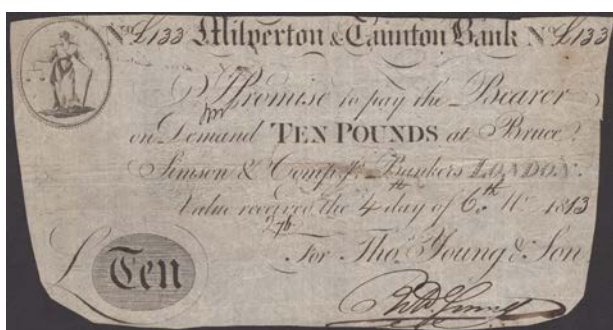 No £133 Milverton & Taunton Bank No £133
I Promise to pay the Bearer
on Demand TEN POUNDS at Bruce
Simson & Compy. Bankers LONDON.
Value received the 4th day of 6th Mo 1813
For Thos. Young & Son
£ Ten